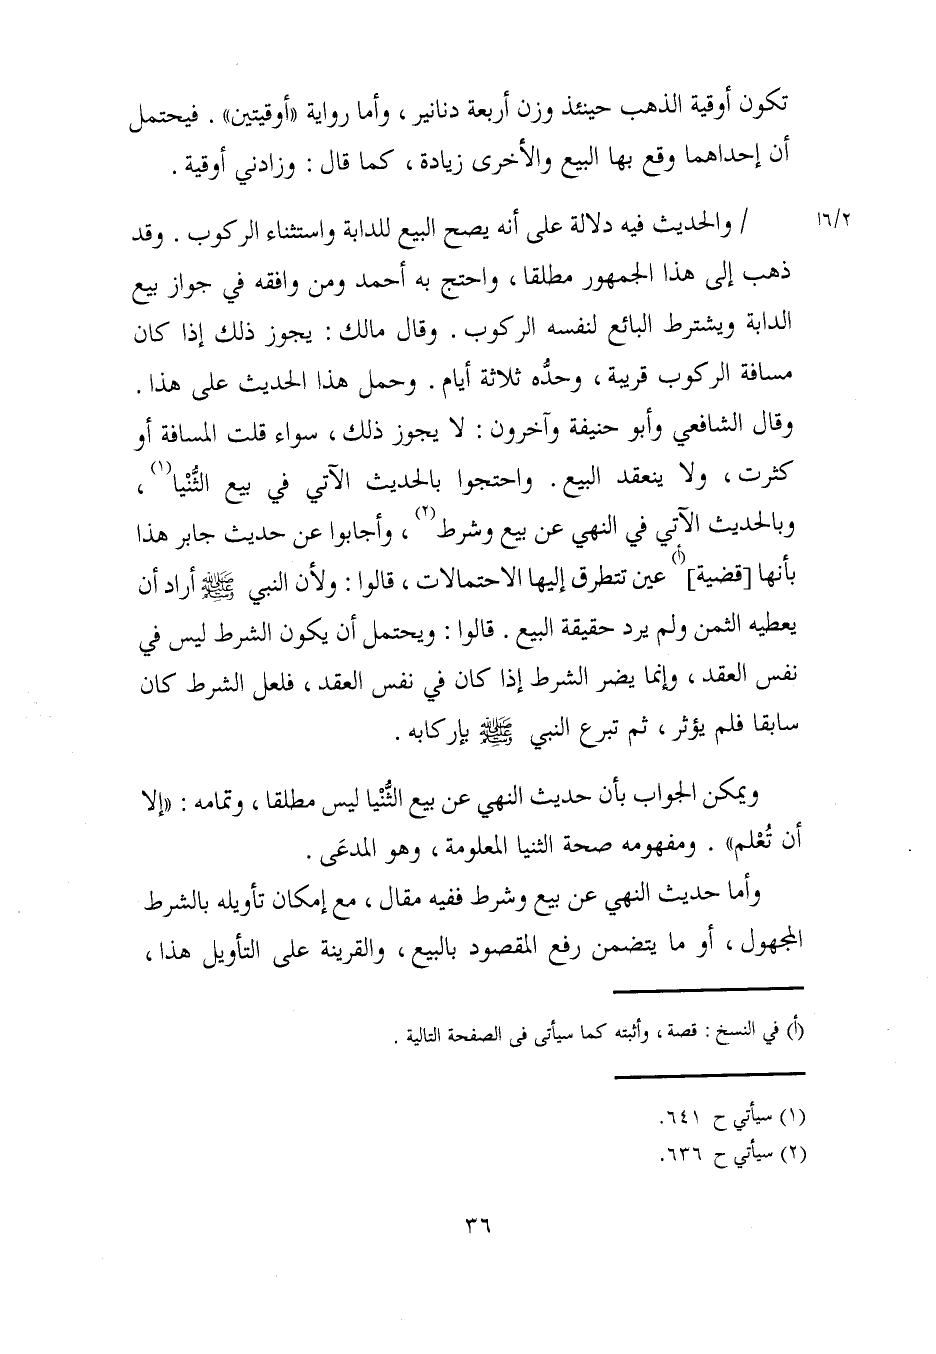 تكون أوقية الذهب حينئذ وزن أربعة دنانير ، وأما رواية «أوقيتين» . فيحتمل
أن إحداهما وقع بها البيع والأخرى زيادة ، كما قال : وزادني أوقية .
١٦/٢ / والحديث فيه دلالة على أنه يصح البيع للدابة واستثناء الركوب . وقد
ذهب إلى هذا الجمهور مطلقا ، واحتج به أحمد ومن وافقه في جواز بيع
الدابة ويشترط البائع لنفسه الركوب . وقال مالك : يجوز ذلك إذا كان
مسافة الركوب قريبة ، وحدُّه ثلاثة أيام . وحمل هذا الحديث على هذا .
وقال الشافعي وأبو حنيفة وآخرون : لا يجوز ذلك ، سواء قلت المسافة أو
كثرت ، ولا ينعقد البيع . واحتجوا بالحديث الآتي في بيع الثُّنْيا(١) ،
وبالحديث الآتي في النهي عن بيع وشرط(٢) ، وأجابوا عن حديث جابر هذا
بأنها [قضية](أ) عين تتطرق إليها الاحتمالات ، قالوا : ولأن النبي ﷺ أراد أن
يعطيه الثمن ولم يرد حقيقة البيع . قالوا : ويحتمل أن يكون الشرط ليس في
نفس العقد ، وإنما يضر الشرط إذا كان في نفس العقد ، فلعل الشرط كان
سابقا فلم يؤثر ، ثم تبرع النبي ﷺ بإركابه .
ويمكن الجواب بأن حديث النهي عن بيع الثُّنْيا ليس مطلقا ، وتمامه : «إلا
أن تُعْلم» . ومفهومه صحة الثنيا المعلومة ، وهو المدعَى .
وأما حديث النهي عن بيع وشرط ففيه مقال ، مع إمكان تأويله بالشرط
المجهول ، أو ما يتضمن رفع المقصود بالبيع ، والقرينة على التأويل هذا ،
(أ) في النسخ : قصة ، وأثبته كما سيأتى فى الصفحة التالية .
(١) سيأتي ح ٦٤١.
(٢) سيأتي ح ٦٣٦.
٣٦